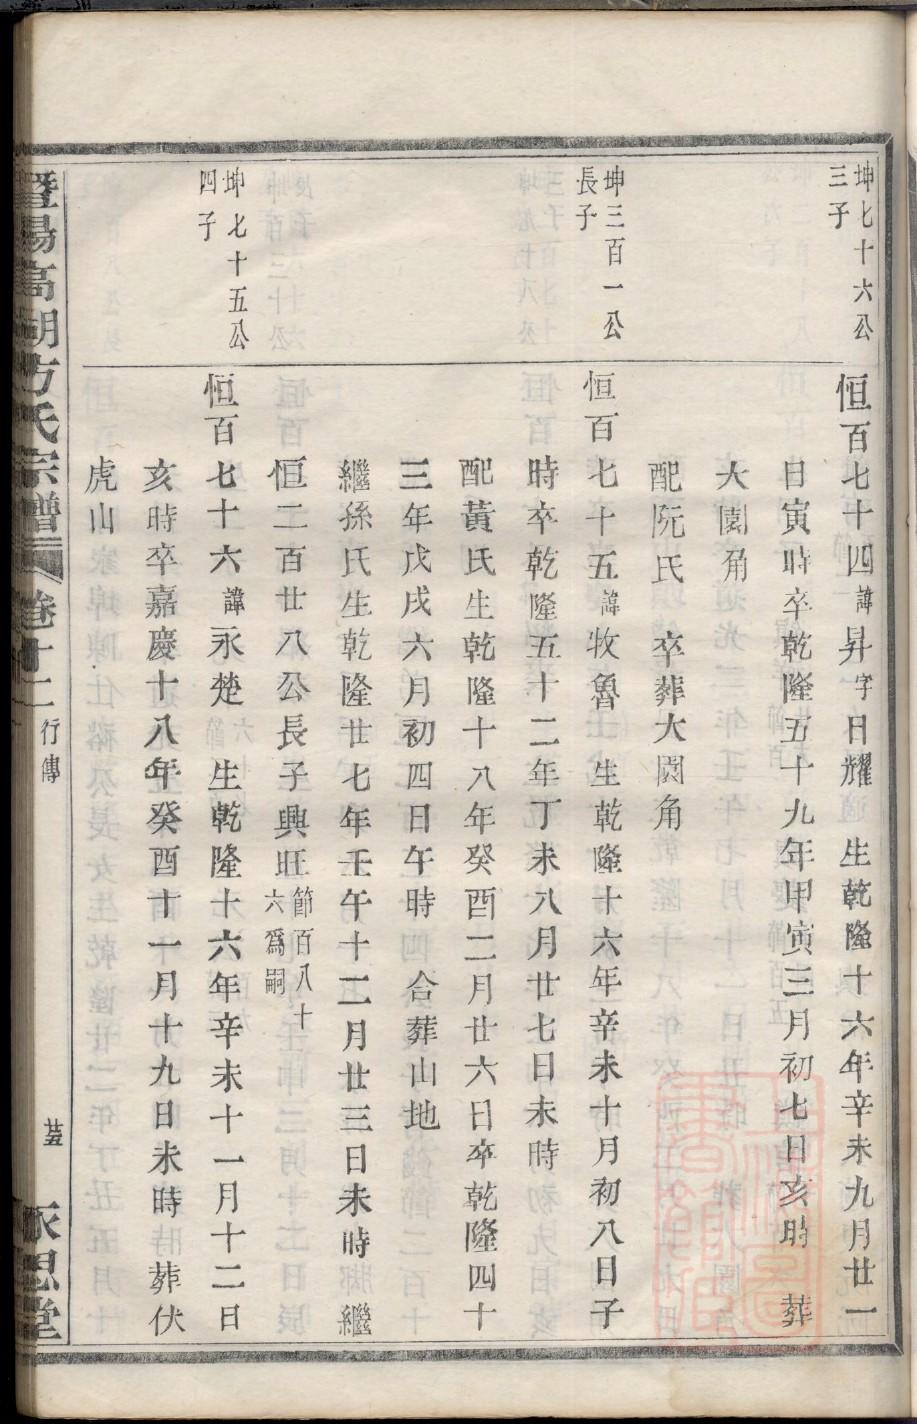 坤七十六公
三子
恒百七十四諱昇字日耀 生乾隆十六年辛未九月廿一
日寅時卒乾隆五十九年甲寅三月初七日亥時 葬
大園角
配阮氏 卒葬大園角
坤三百一公
長子
恒百七十五諱牧魯 生乾隆十六年辛未十月初八日子
時卒乾隆五十二年丁未八月廿七日未時
配黃氏生乾隆十八年癸酉二月廿六日卒乾隆四十
三年戊戌六月初四日午時 合葬山地
繼孫氏生乾隆廿七年壬午十二月廿三日未時 繼
恒二百廿八公長子興旺節百八十
六爲嗣
坤七十五公
四子
恒百七十六諱永楚 生乾隆十六年辛未十一月十二日
亥時卒嘉慶十八年癸酉十一月十九日未時 葬伏
虎山
暨陽高湖方氏宗譜 卷十二 行傳 永思堂